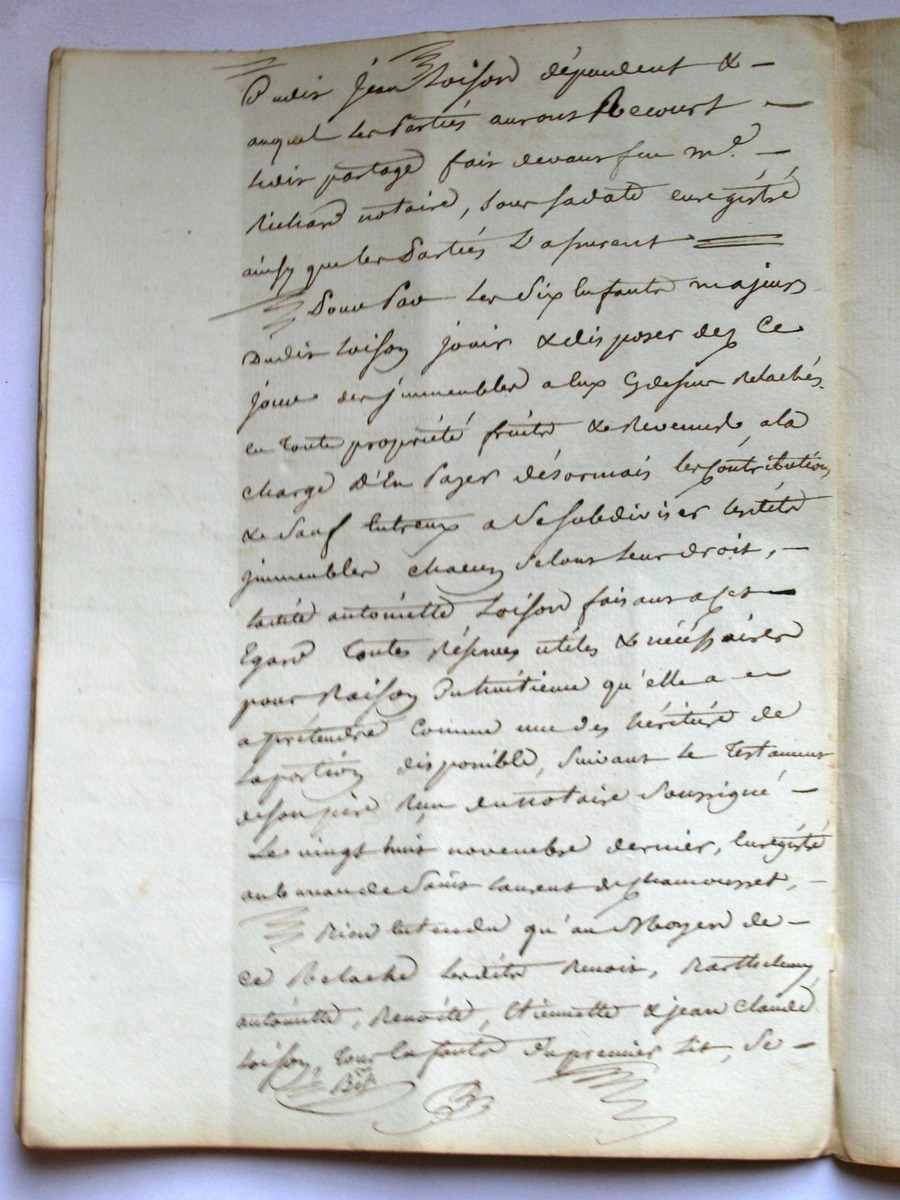 Dudit jean Loison dépendent &
auquel les Parties auront Recourt
ledit partage fait devant feu m.e
Richard notaire, sous sa date enregistré
ainsy que les Parties L'assurent
Pour Par les Six Enfants majeurs
Dudit Loison jouir & disposer dez Ce
jour des jmmeubles a Eux Cydessus Relachés
en toute propriété fruits & Revenus a la
charge D'En Payer désormais les Contributions
& Sauf Entreux a Se subdiviser lesdits
jmmeubles chacun Selons leur droit,
ladite antoinette Loison faisant a Cet
Egard toutes Réserves utiles & nécéssaires
pour Raison Du huitieme qu'elle a
a prétendre Comme une des héritiére de
La portion disponible, Suivant le Testament
de son pére Reçu du notaire Soussigné
Le vingt huit novembre dernier, Enrégistré
au bureau de Saint Laurent de Chamousset,
Bien Entendu qu'au Moyen de
ce Relache lesdits Benoit, Barthelemy
antoinette, Benoite, Etiennette & jean Claude
Loison, Tous Enfants Du premier Lit, Se